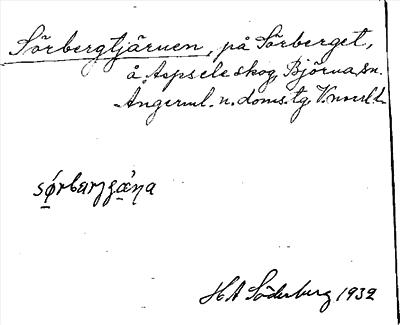 Sörbergtjärnen, på Sörberget,
å Aspsele skog, Björna sn.
Ångerml. n. doms. tg, V.norrl. l.
sǿrbarŋgǽɳa
H A Söderberg 1932